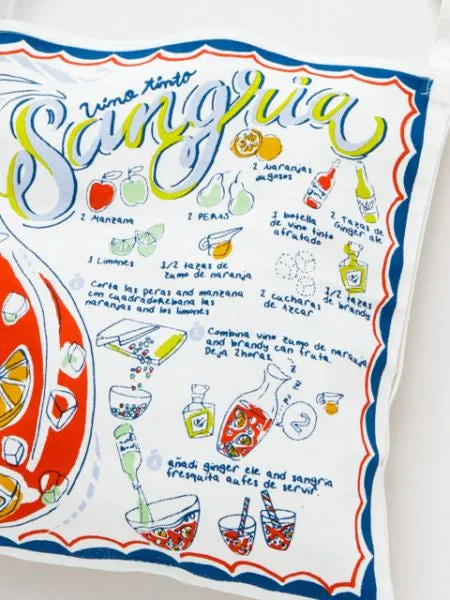 vino tinto
Sangria
2 Naranjas
jugosos
2 Manzana
2 PERAS
1 botella
de vino tinto
afrutado
2 Tazas de
Ginger ale
3 Limones
1/2 tazas de
zumo de naranja
2 cucharas
de Azcar
1/2 tazas
de brandy
Corta las peras and manzana
con cuadradoRebana las
naranjas and los limones
Combina vino zumo de naranja
and brandy con fruta.
Deja 2horas.
z
z
z
2
añadi ginger ele and sangria
fresquita autes de servir.